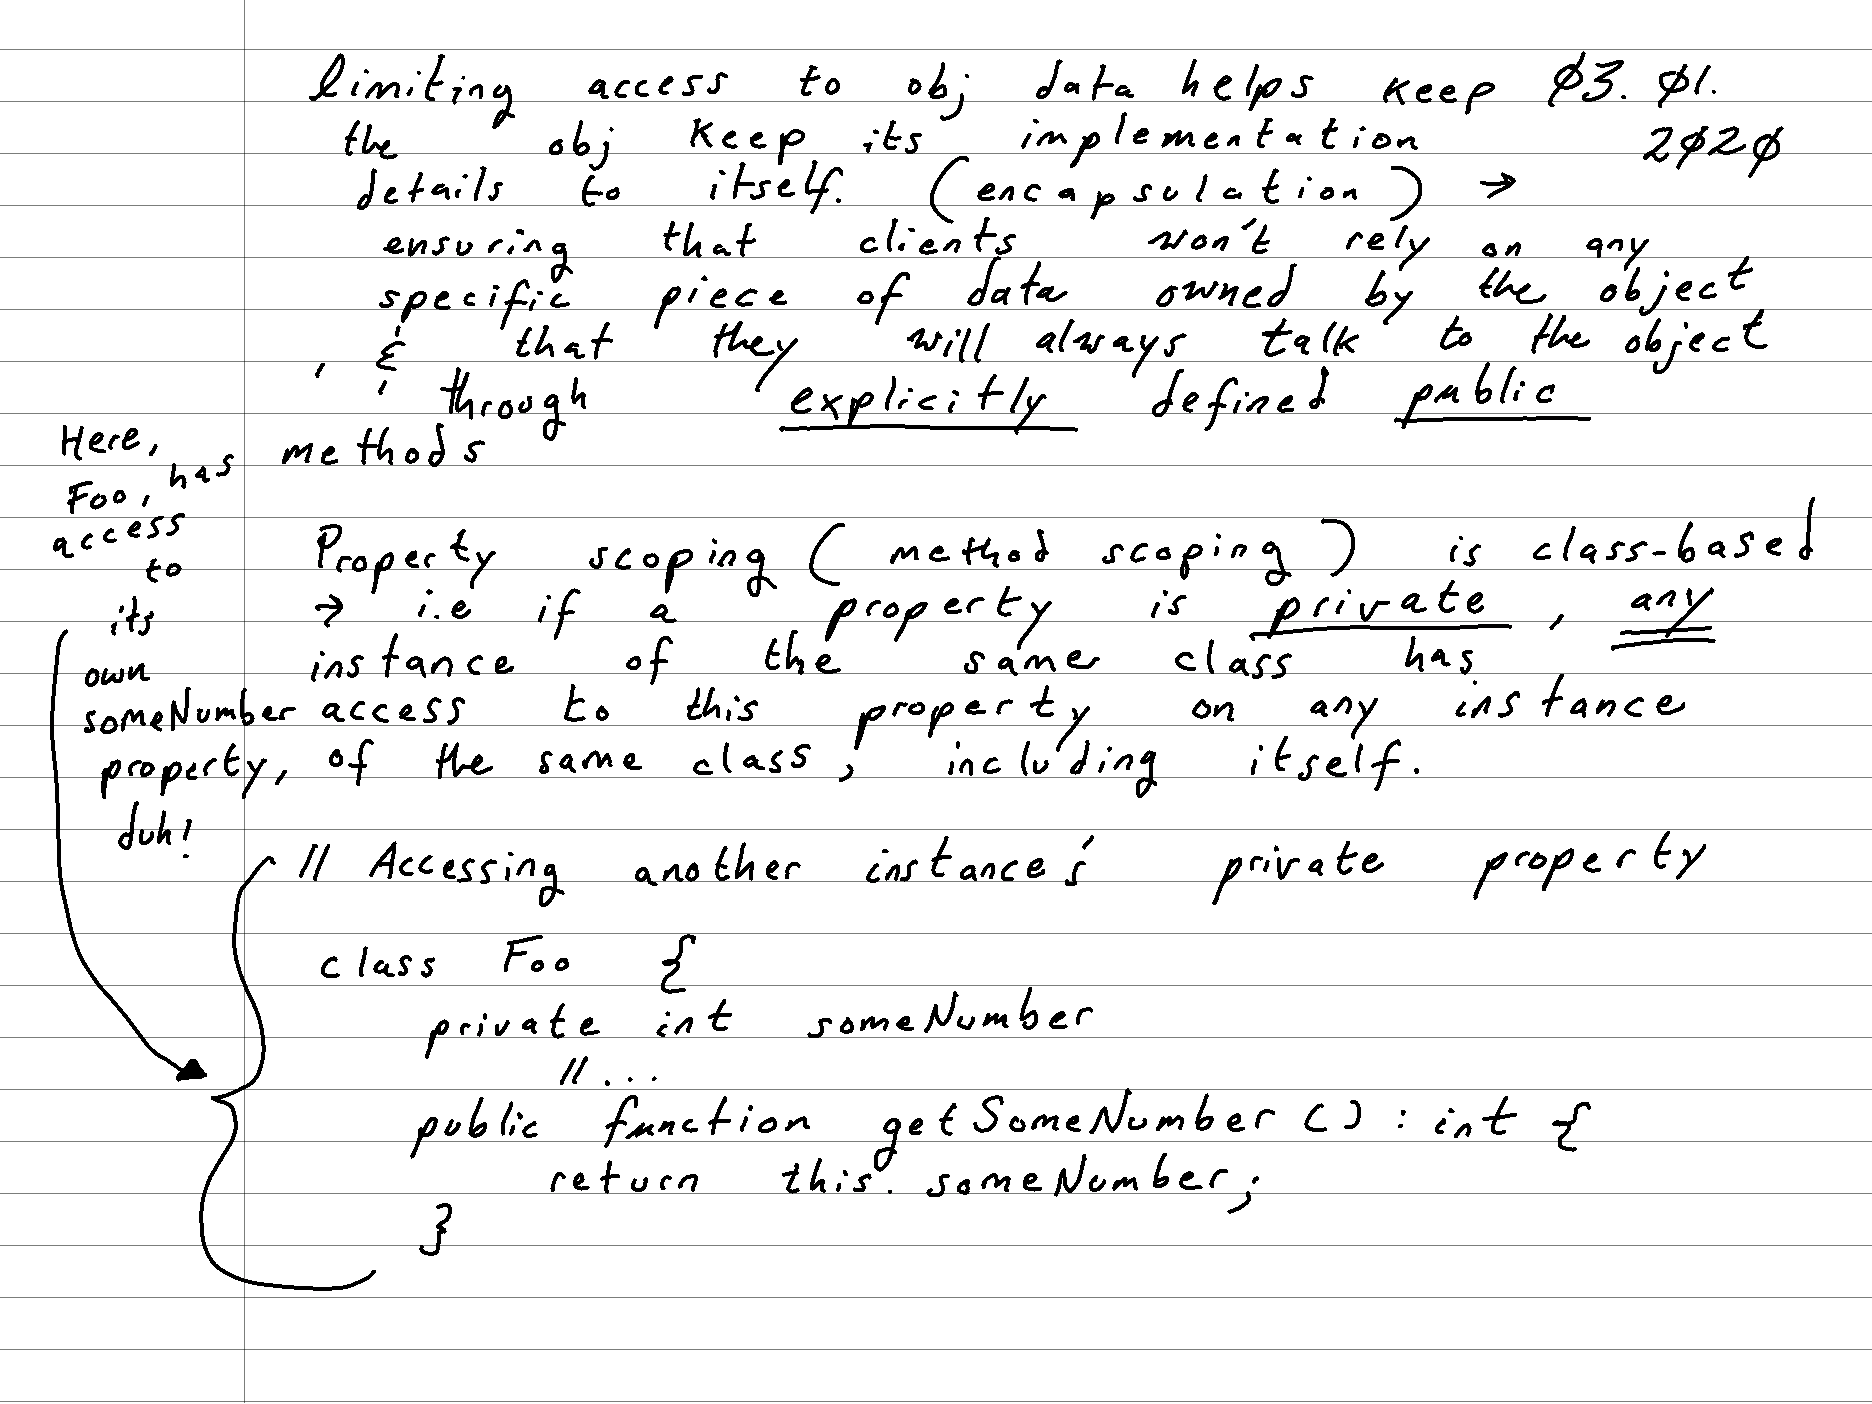 limiting access to obj data helps keep Ø3. Ø1.
the obj keep its implementation 2Ø2Ø
details to itself. (encapsulation) →
ensuring that clients won't rely on any
specific piece of data owned by the object
, & that they will always talk to the object
through explicitly defined public
methods
Here,
Foo, has
access
to
its
own
someNumber
property,
duh!
Property scoping (method scoping) is class-based
→ i.e if a property is private, any
instance of the same class has
access to this property on any instance
of the same class, including itself.
// Accessing another instance's private property
class Foo {
private int someNumber
// ...
public function getSomeNumber () : int {
return this. someNumber;
}